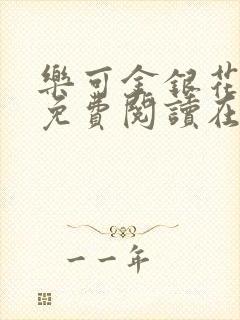 樂可金銀花
免費閱讀在
一一年